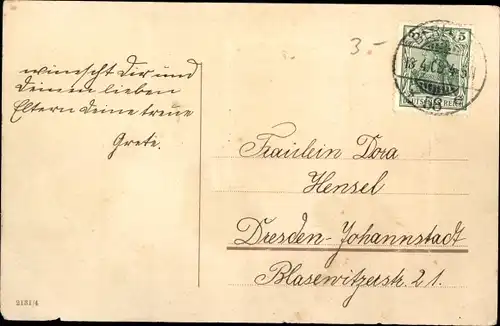 wünscht Dir und
Deinen lieben
Eltern Deine treue
Grete.
3.-
5 5
Fräulein Dora
Hensel
Dresden-Johannstadt
Blasewitzerstr. 21.
2131/4